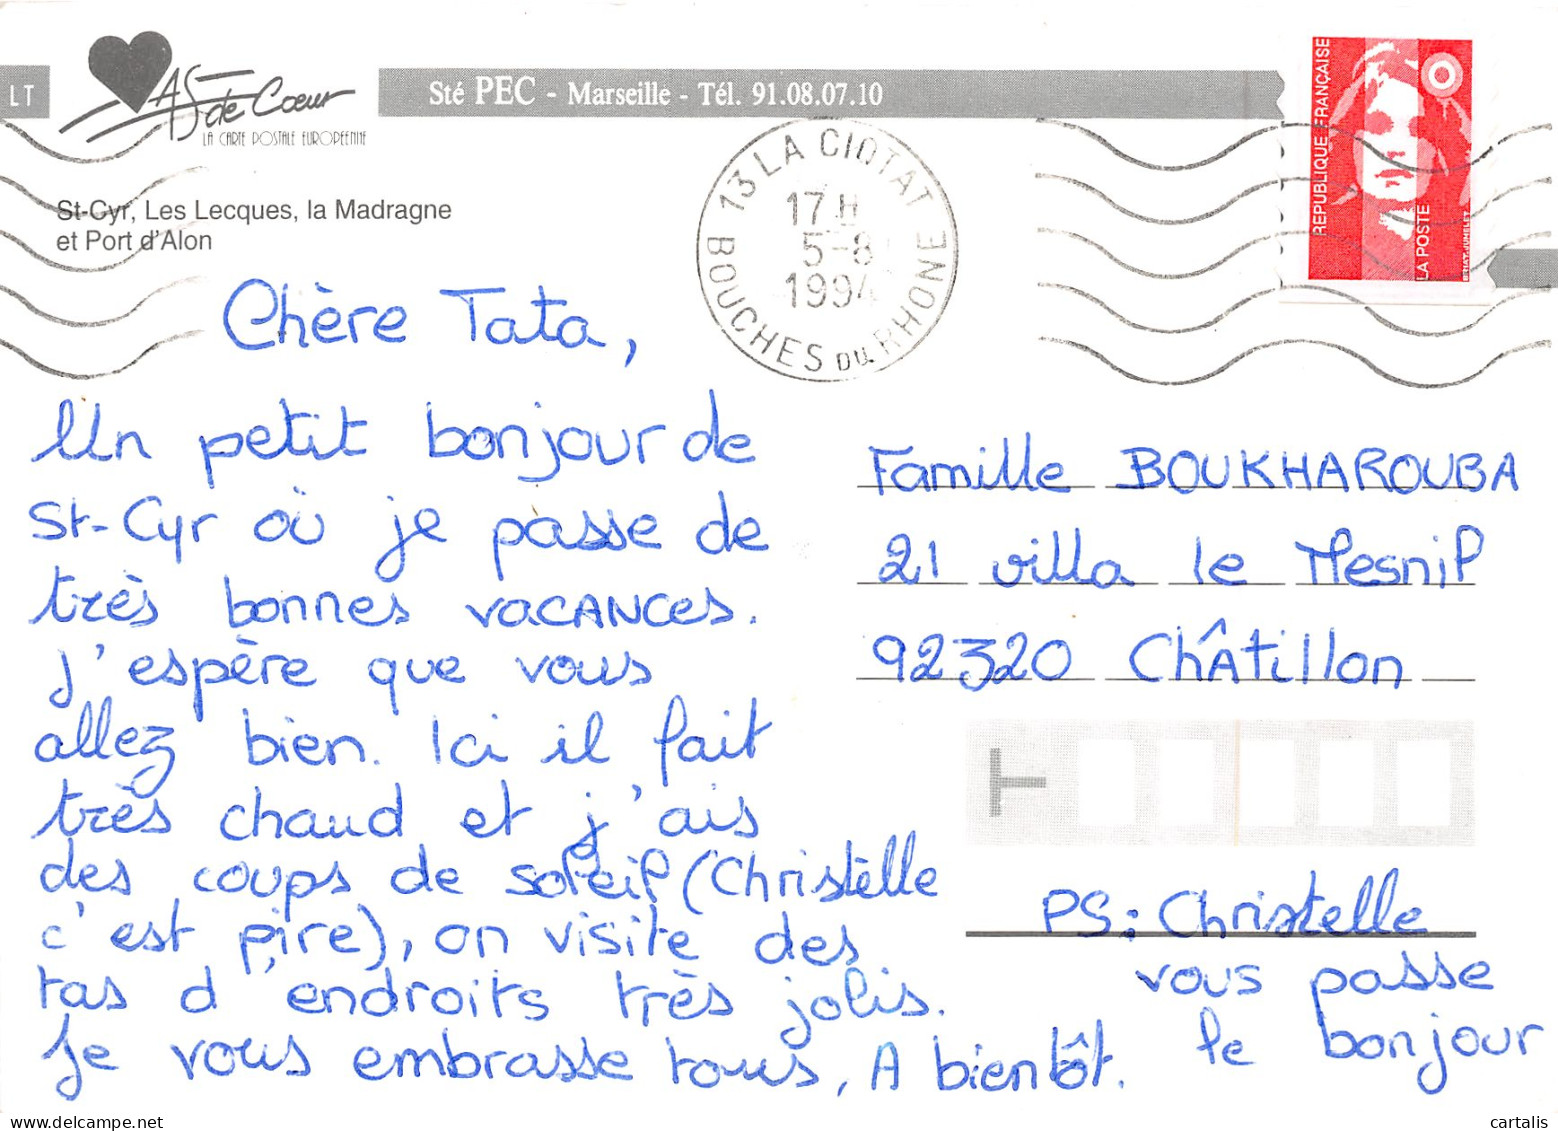 LT
AS de Coeur
LA CARTE POSTALE EUROPÉENNE
Sté PEC - Marseille - Tél. 91.08.07.10
RÉPUBLIQUE FRANÇAISE
LA POSTE
BRIAT-JUMELET
13 LA CIOTAT
17 H
5-8
1994
BOUCHES DU RHONE
St-Cyr, Les Lecques, la Madragne
et Port d'Alon
Chère Tata,
Un petit bonjour de
St-Cyr où je passe de
très bonnes vacances.
j'espère que vous
allez bien. Ici il fait
très chaud et j'ais
des coups de soleil (Christèlle
c'est pire), on visite des
tas d'endroits très jolis.
Je vous embrasse tous, A bientôt.
Famille BOUKHAROUBA
21 villa le Mesnil
92320 Châtillon
PS: Christelle
vous passe
le bonjour
www.delcampe.net
cartalis